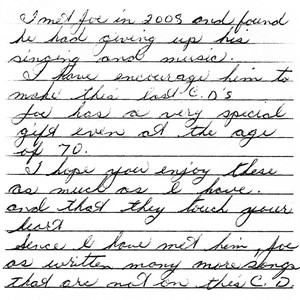 I met Joe in 2008 and found
he had giving up his
singing and music.
I have encourage him to
make this last C.D's
Joe has a very special
gift even at the age
of 70.
I hope you enjoy these
as much as I have.
and that they touch your
heart
Since I have met him, Joe
as written many more songs
that are not on this C.D.